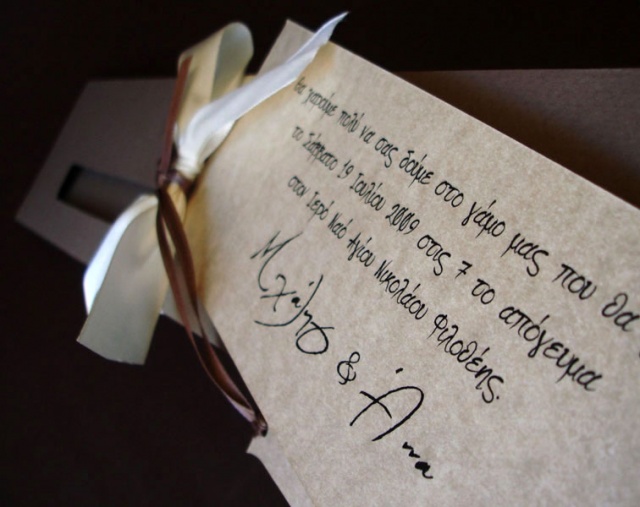 Θα χαρούμε πολύ να σας δούμε στο γάμο μας που θα
το Σάββατο 19 Ιουλίου 2009 στις 7 το απόγευμα
στον Ιερό Ναό Αγίου Νικολάου Φιλοθέης.
Μιχάλης
&
Άννα